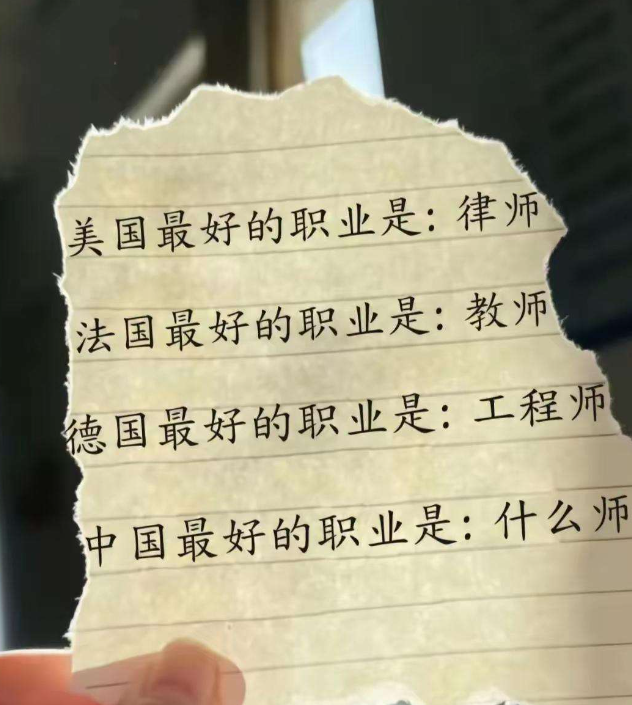 美国最好的职业是：律师
法国最好的职业是：教师
德国最好的职业是：工程师
中国最好的职业是：什么师